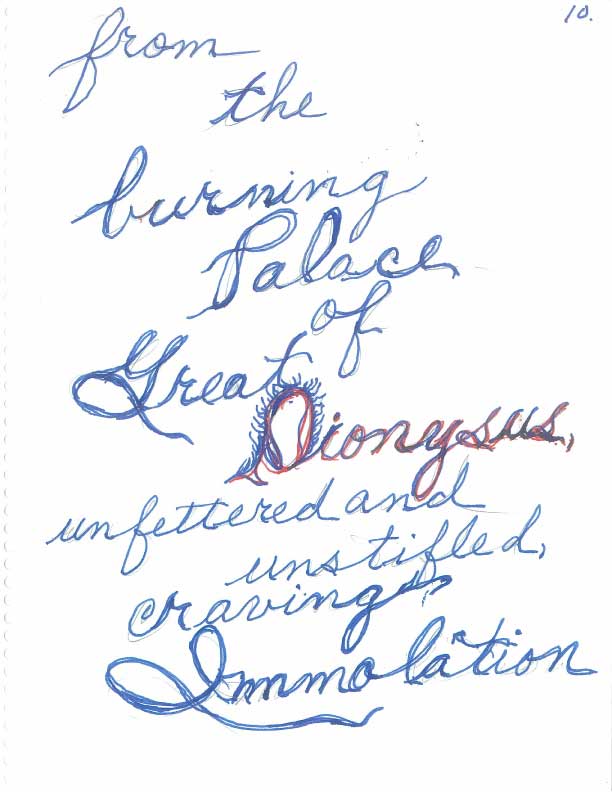 10.
from
the
burning
Palace
of
Great
Dionysus,
unfettered and
unstifled,
craving,
Immolation